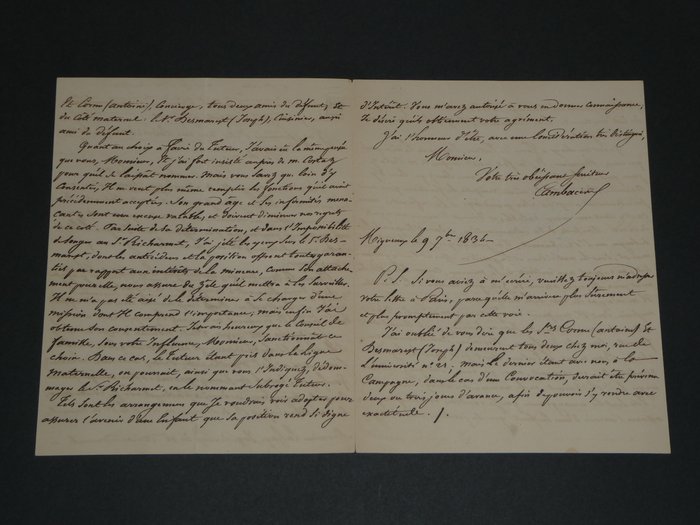 Et Cornu (antoine), Concierge, tous deux amis du défunt; et
du Coté maternel: le Sr. Desmarest (Joseph), Cuisinier, aussi
ami du défunt.
Quant au choix à faire du Tuteur, J'avais eu la même pensée
que vous, Monsieur, Et j'ai fort insisté auprès de m. Costaz
pour qu'il se laissat nommer. Mais vous savez que loin d'y
Consentir, Il ne veut plus même remplir les fonctions qu'il avait
précédemment acceptées. Son grand âge et ses infirmités
sont une excuse valable, et doivent diminuer nos regrets
de ce coté. Par suite de sa détermination, et dans l'Impossibilité
de songer au Sr. Richarmet, J'ai jeté les yeux sur le Sr. Des-
marest, dont les antécédents et la position offrent toutes garan-
ties par rapport aux intérêts de la mineure, comme son attache-
ment pour elle, nous assure du Zèle qu'il mettra à les surveiller.
Il ne m'a pas été aisé de le déterminer à se charger d'une
mission dont Il comprend l'importance, mais enfin J'ai
obtenu son consentement. Très heureux que le Conseil de
famille, sous votre Influence, Monsieur, Sanctionnât ce
choix. Dans ce cas, le Tuteur étant pris dans la Ligne
maternelle, on pourrait, ainsi que vous l'Indiquez, dédom-
mager le Sr. Richarmet, en le nommant Subrogé Tuteur.
Tels sont les arrangemens que Je voudrais voir adoptés pour
assurer l'avenir d'une Enfant que sa position rend si digne
d'Intérêt. Vous m'avez autorisé à vous en donner connaissance,
Je désire qu'ils obtiennent votre agrément.
J'ai l'honneur d'être, avec une Considération très distinguée,
Monsieur,
Votre très obéissant serviteur
Cambacérès
le 9 7bre 1834
P.S. Si vous aviez à m'écrire, veuillez toujours m'adresser
votre lettre à Paris, parce qu'elle m'arrivera plus sûrement
et plus promptement par cette voie.
J'ai oublié de vous dire que les Srs. Cornu (antoine) Et
Desmarest (Joseph) demeurent tous deux chez moi, rue de
L'université no. 21, mais le dernier étant avec moi, à la
Campagne, dans le cas d'un Convocation, devrait être prévenu
deux ou trois jours d'avance, afin de pouvoir s'y rendre avec
exactitude.